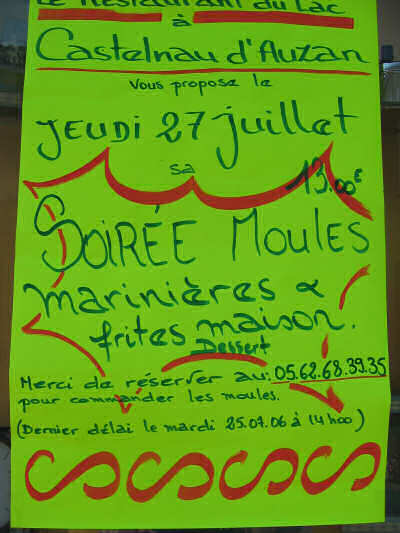 Le Restaurant du Lac
à
Castelnau d'Auzan
Vous propose le
JEUDI 27 juillet
sa
13.00€
SOIRÉE MOULES
marinières &
frites maison.
Dessert
Merci de réserver au: 05.62.68.39.35
pour commander les moules.
(Dernier délai le mardi 25.07.06 à 14h00)